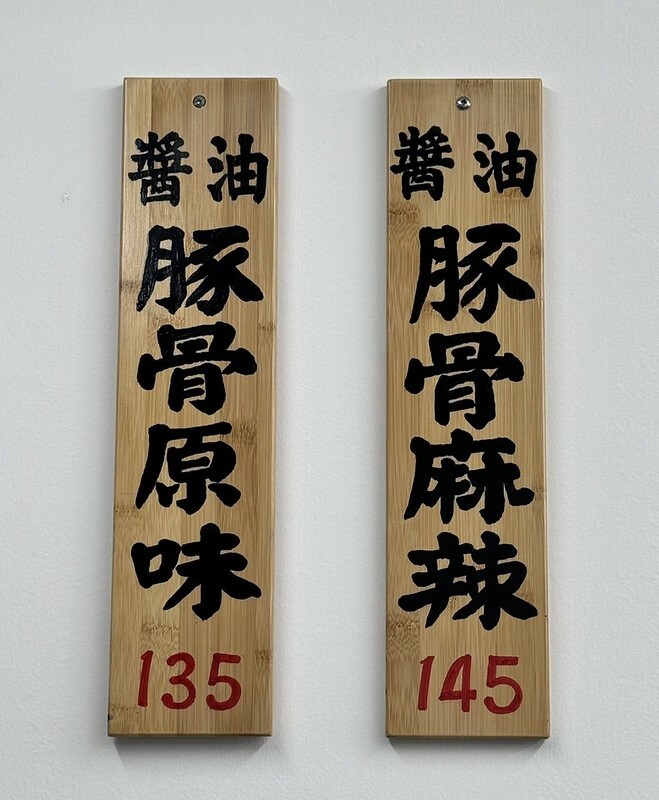 醬油
豚骨原味
135
醬油
豚骨麻辣
145